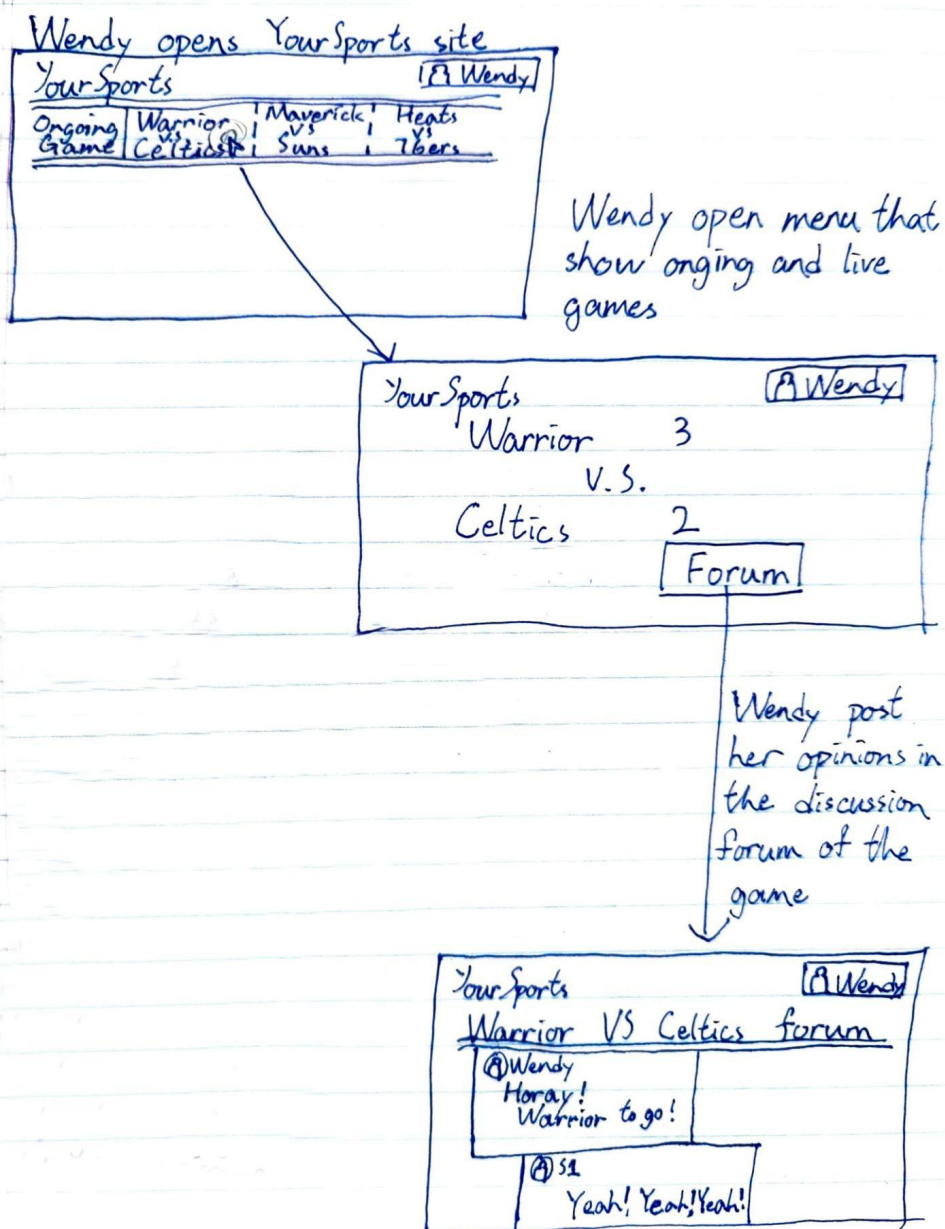 Wendy opens YourSports site
YourSports
Wendy
Ongoing Game
Warrior v.s Celtics
Maverick vs Suns
Heats vs 76ers
Wendy open menu that
show onging and live
games
YourSports
Wendy
Warrior 3
V.S.
Celtics 2
Forum
Wendy post
her opinions in
the discussion
forum of the
game
YourSports
Wendy
Warrior VS Celtics forum
Wendy
Horay!
Warrior to go!
S1
Yeah! Yeah! Yeah!